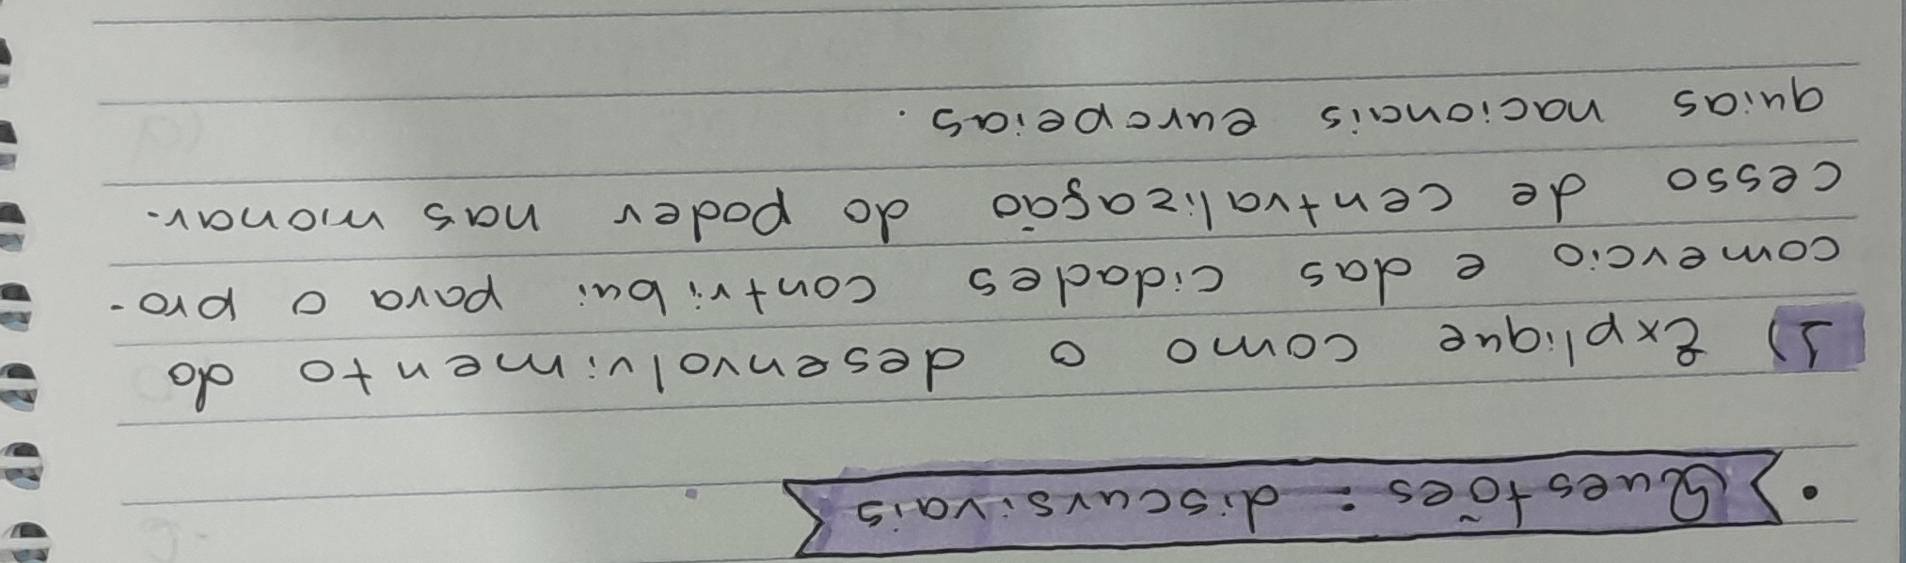 • Questões: discursivais
1) Explique como o desenvolvimento do
comercio e das cidades contribui para o pro-
cesso de centralização do poder nas monar-
quias nacionais europeias.